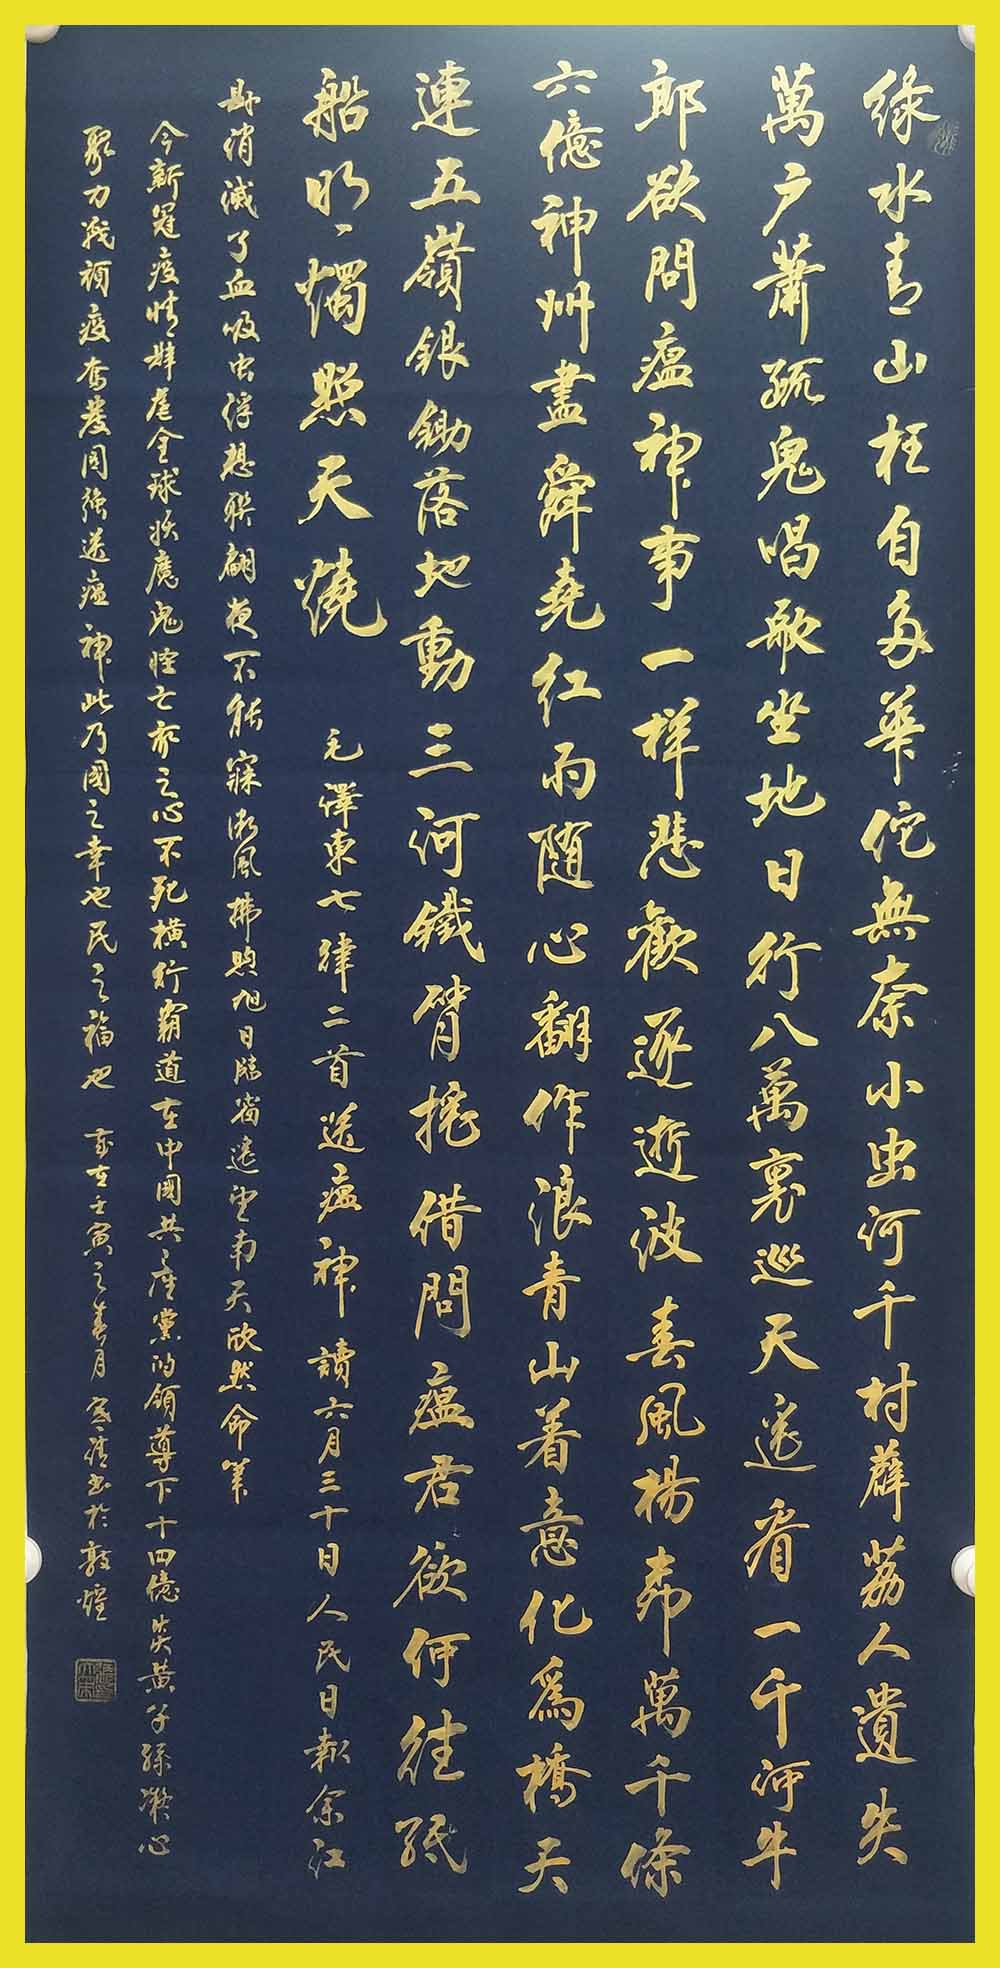 緣水青山枉自多華佗無奈小虫何千村薜荔人遺失
萬户蕭疏鬼唱歌坐地日行八萬裏巡天遥看一千河牛
郎欲問瘟神事一样悲歡逐逝波春風楊柳萬千條
六億神州盡舜堯紅雨随心翻作浪青山着意化為橋天
連五嶺銀鋤落地動三河鐵臂搖借問瘟君欲何往纸
船明、燭照天燒
毛澤東七律二首送瘟神讀六月三十日人民日報余江
縣消滅了血吸虫浮想聯翩夜不能寐微風拂煦旭日臨窗遥望南天欣然命筆
今新冠疫情肆虐全球妖魔鬼怪亡我之心不死横行霸道在中國共産黨的領導下十四億炎黄子孫凝心
聚力戰頑疫奮發圖强送瘟神此乃國之幸也民之福也 歲在壬寅之春月 書於敦煌